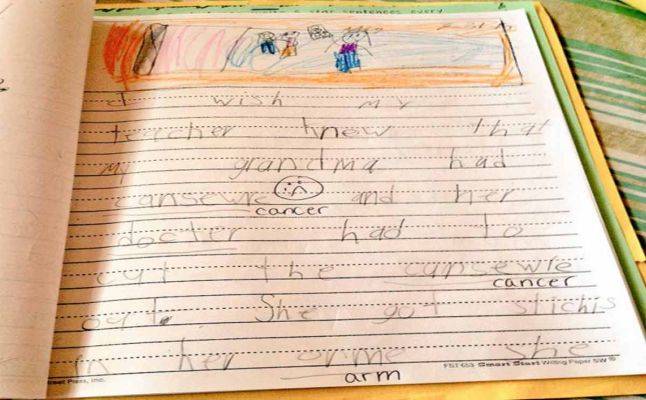 star sentences every
I wish my
teacher knew that
my grandma had
cansewre and her
cancer
docter had to
cut the cansewre
cancer
out. She got stichis
in her arme she
arm
reet Press, Inc.
FST 653 Smart Start Writing Paper SW